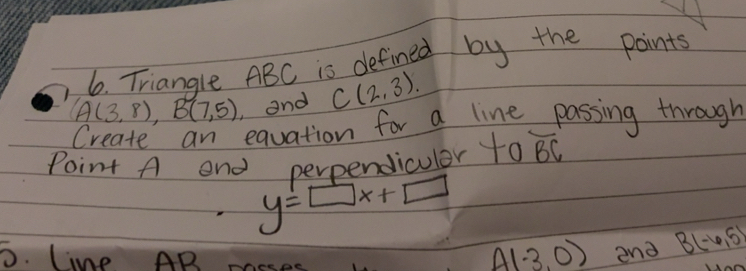 6. Triangle ABC is defined by the points
A(3,8), B(7,5), and C(2,3).
Create an equation for a line passing through
Point A and perpendicular to BC
y=□x+□
5. Line AB passes A(-3,0) and B(-6,5)